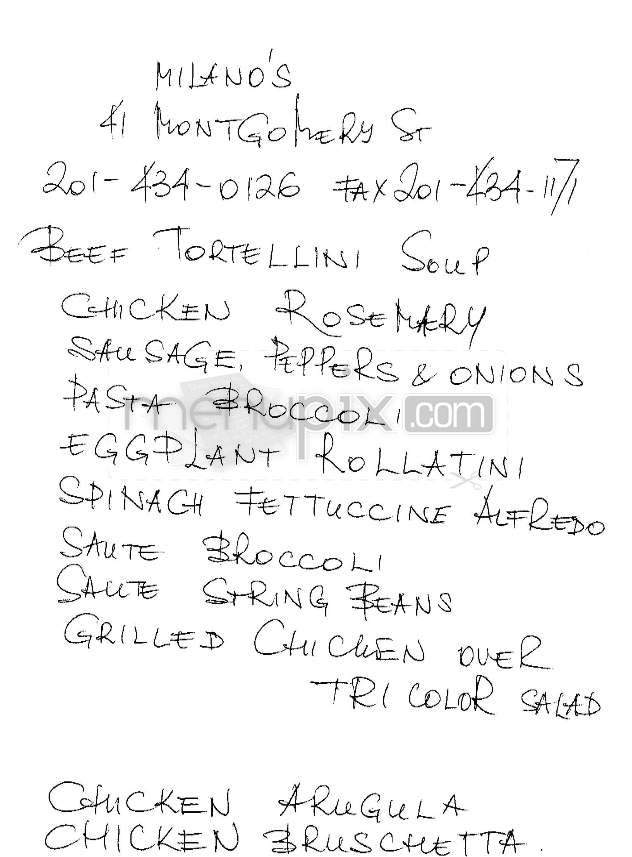 MILANO'S
41 MONTGOMERY ST
201-434-0126 FAX 201-434-1171
BEEF TORTELLINI SOUP
CHICKEN ROSEMARY
SAUSAGE, PEPPERS & ONIONS
PASTA BROCCOLI
menupix.com
EGGPLANT ROLLATINI
SPINACH FETTUCCINE ALFREDO
SAUTE BROCCOLI
SAUTE STRING BEANS
GRILLED CHICKEN OVER
TRI COLOR SALAD
CHICKEN ARUGULA
CHICKEN BRUSCHETTA.